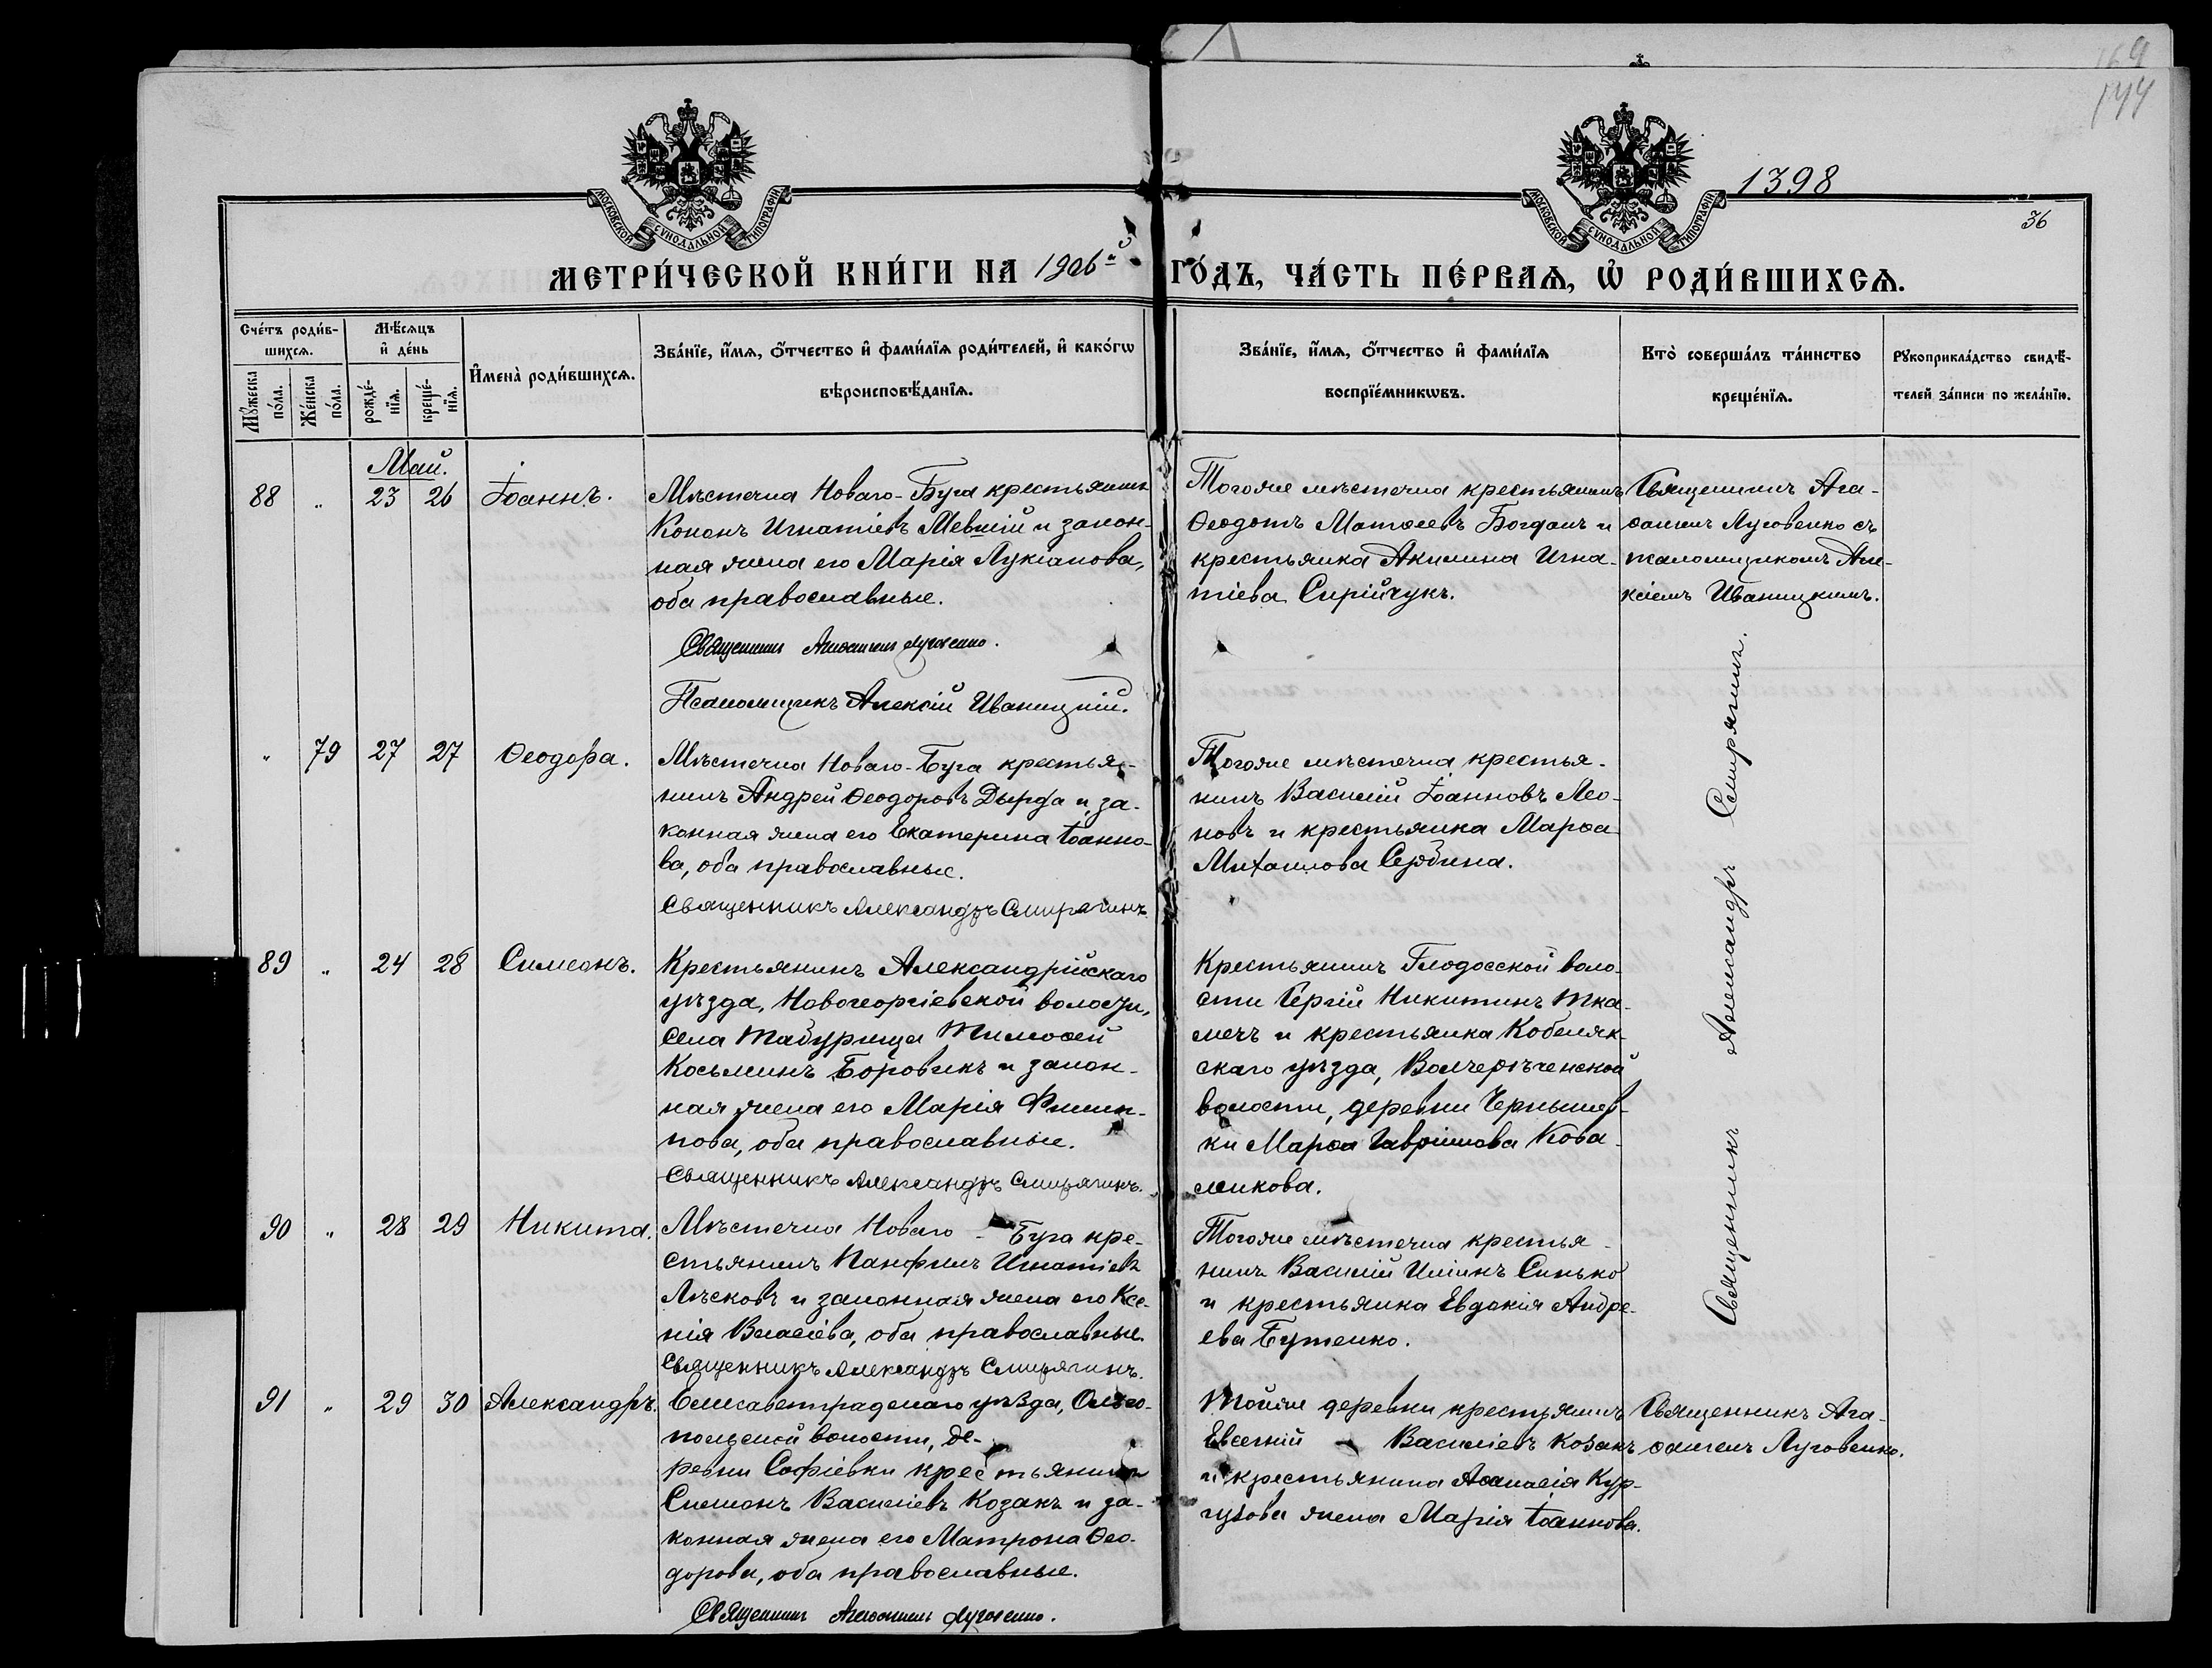 169
144
1398
36
МОСКОВСКОЙ СѴНОДАЛЬНОЙ ТИПОГРАФІИ
МОСКОВСКОЙ СѴНОДАЛЬНОЙ ТИПОГРАФІИ
МЕТРИ́ЧЕСКОЙ КНИ́ГИ НА 1906й ГО́ДЪ, ЧА́СТЬ ПЕ́РВАѦ, Ѡ҆ РОДИ́ВШИХСѦ.
Сче́тъ роди́в-
шихсѧ.
Мꙋ́жеска по́ла.
Же́нска по́ла.
Мѣ́сѧцъ
и҆ де́нь
рожде́-
нїѧ.
креще́-
нїѧ.
И҆мена̀ роди́вшихсѧ.
Зва́нїе, и҆́мѧ, ѻ҆́тчество и҆ фами́лїѧ роди́телей, и҆ како́гѡ
вѣроисповѣ́данїѧ.
Зва́нїе, и҆́мѧ, ѻ҆́тчество и҆ фами́лїѧ
воспрїе́мникѡвъ.
Кто̀ соверша́лъ та́инство
креще́нїѧ.
Рꙋкоприкла́дство свидѣ́-
телей за́писи по жела́нїю.
Май.
88 " 23 26 Іоаннъ.
Мѣстечка Новаго-Буга крестьянинъ
Кононъ Игнатіевъ Мевшій и закон-
ная жена его Марія Лукіанова,
оба православные.
Священникъ Агаѳангелъ Луговенко.
Псаломщикъ Алексій Иваницкій.
Тогоже мѣстечка крестьянинъ
Ѳеодотъ Матѳеевъ Богданъ и
крестьянка Акилина Игна-
тіева Сирійчукъ.
Священникъ Ага-
ѳангелъ Луговенко съ
псаломщикомъ Але-
ксіемъ Иваницкимъ.
" 79 27 27 Ѳеодора.
Мѣстечка Новаго-Буга крестья-
нинъ Андрей Ѳеодоровъ Дырда и за-
конная жена его Екатерина Іоанно-
ва, оба православные.
Священникъ Александръ Смирягинъ.
Тогоже мѣстечка крестья-
нинъ Василій Іоанновъ Лео-
новъ и крестьянка Марѳа
Михаилова Сербина.
Священникъ Александръ Смирягинъ.
89 " 24 28 Симеонъ.
Крестьянинъ Александрійскаго
уѣзда, Новогеоргіевской волости,
села Табурища Тимоѳей
Косьминъ Боровикъ и закон-
ная жена его Марія Филип-
пова, оба православные.
Священникъ Александръ Смирягинъ.
Крестьянинъ Глодосской воло-
сти Сергій Никитинъ Тка-
ленъ и крестьянка Кобеляк-
скаго уѣзда, Волчерѣченской
волости, деревни Чернышев-
ки Марѳа Гавріилова Кова-
ликова.
90 " 28 29 Никита.
Мѣстечка Новаго-Буга кре-
стьянинъ Панфилъ Игнатіевъ
Лѣсковъ и законная жена его Ксе-
нія Власіева, оба православные.
Священникъ Александръ Смирягинъ.
Тогоже мѣстечка крестья-
нинъ Василій Иліинъ Синько
и крестьянка Евдокія Андре-
ева Бутенко.
91 " 29 30 Александръ.
Елисаветградскаго уѣзда, Ольго-
польской волости, де-
ревни Софіевки крестьянинъ
Симеонъ Василіевъ Козакъ и за-
конная жена его Матрона Ѳео-
дорова, оба православные.
Священникъ Агаѳангелъ Луговенко.
Тойже деревни крестьянинъ
Евсегній Василіевъ Козакъ
и крестьянина Аѳанасія Кур-
гузова жена Марія Іоаннова.
Священникъ Ага-
ѳангелъ Луговенко.